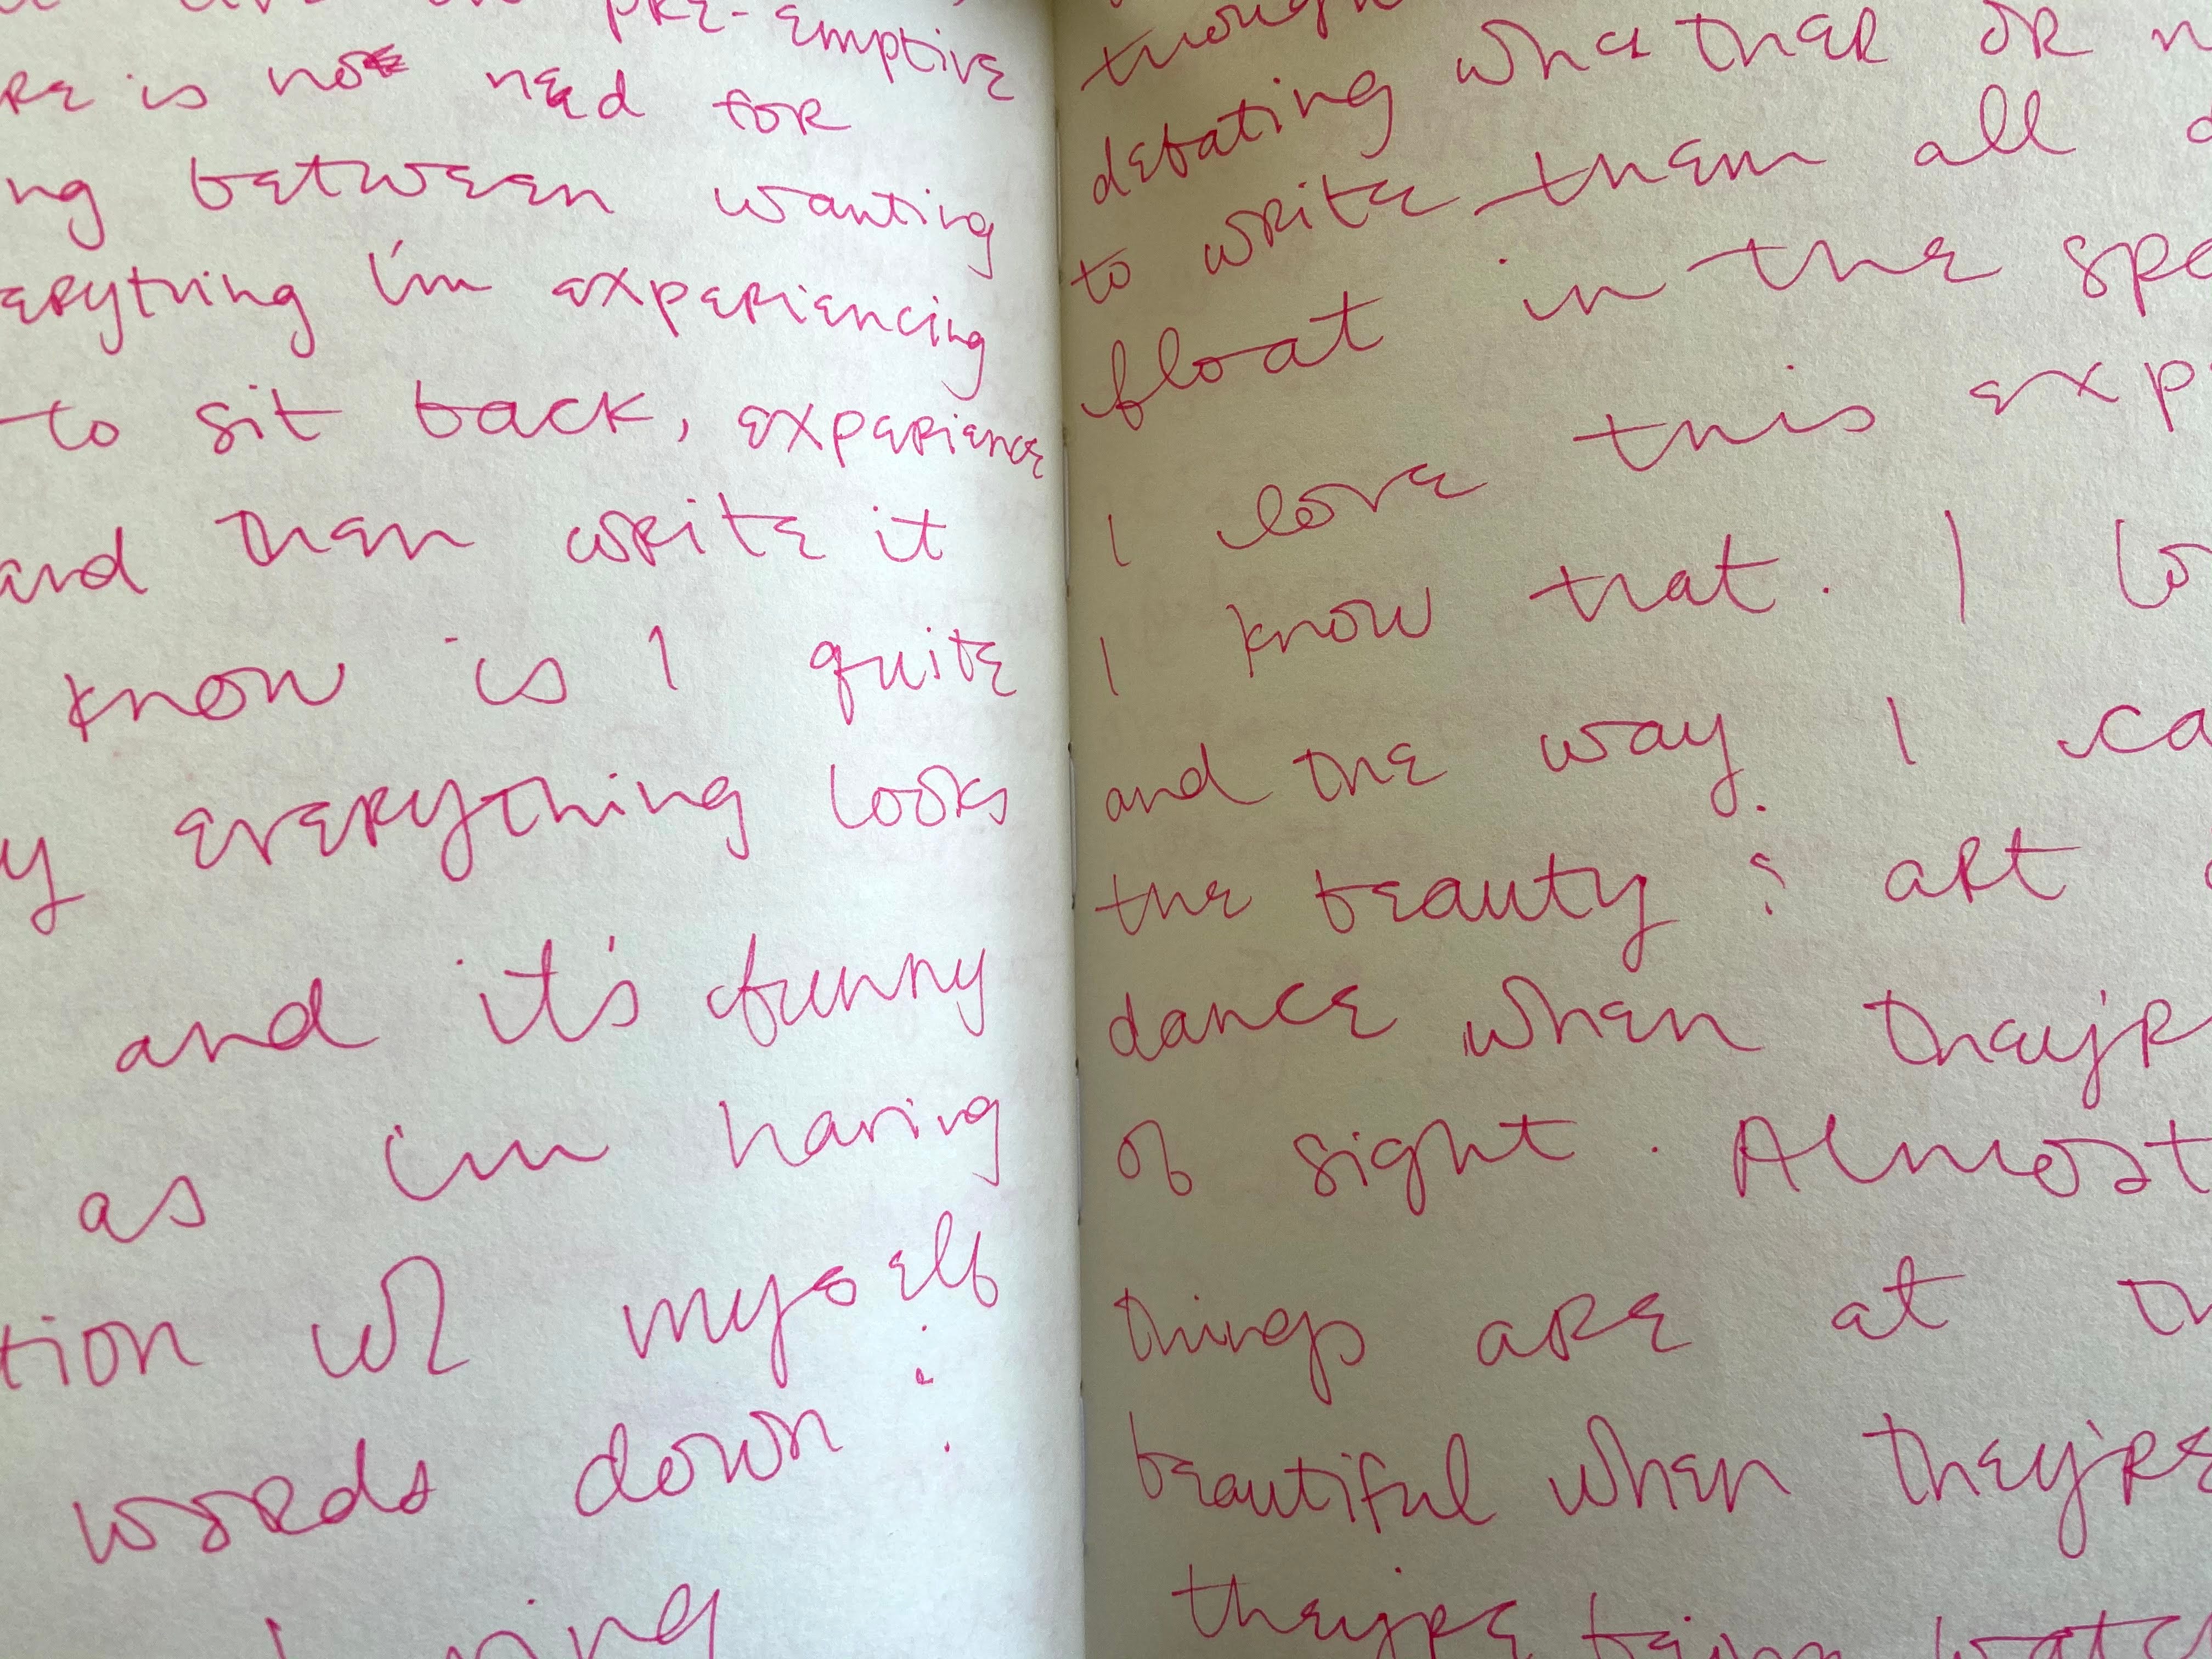 pre-emptive
re is not need for
ng between wanting
erything I'm experiencing
to sit back, experience
and then write it
know is I quite
y everything looks
and it's funny
as i'm having
tion w/ myself
words down :
though
debating whether or n
to write them all
float in the spa
I love this exp
I know that. I lo
and the way I ca
the beauty & art
dance when they'r
of sight. Almost
things are at th
beautiful when they're
they're being watc